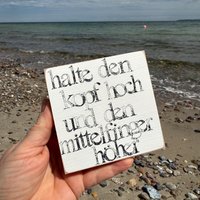 halte den
kopf hoch
und den
mittelfinger
höher